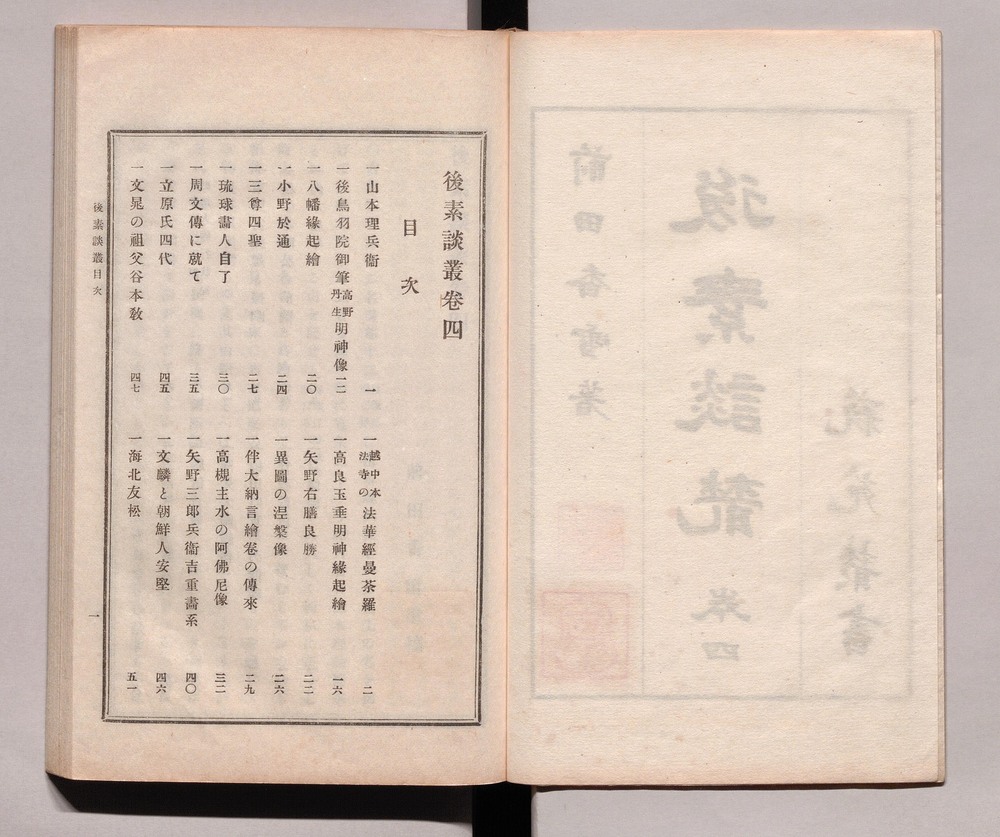 藝苑叢書
後素談叢 卷四
前田香雪著
後素談叢卷四
目次
一山本理兵衞 一 一越中本法寺の法華經曼荼羅 二
一後鳥羽院御筆高野丹生明神像 一二 一高良玉垂明神緣起繪 一六
一八幡緣起繪 二〇 一矢野右膳良勝 二二
一小野於通 二四 一異圖の涅槃像 二六
一三尊四聖 二七 一伴大納言繪卷の傳來 二九
一琉球畵人自了 三〇 一高槻主水の阿佛尼像 三二
一周文傳に就て 三五 一矢野三郎兵衞吉重畵系 四〇
一立原氏四代 四五 一文麟と朝鮮人安堅 四六
一文晁の祖父谷本敎 四七 一海北友松 五一
後素談叢目次
一